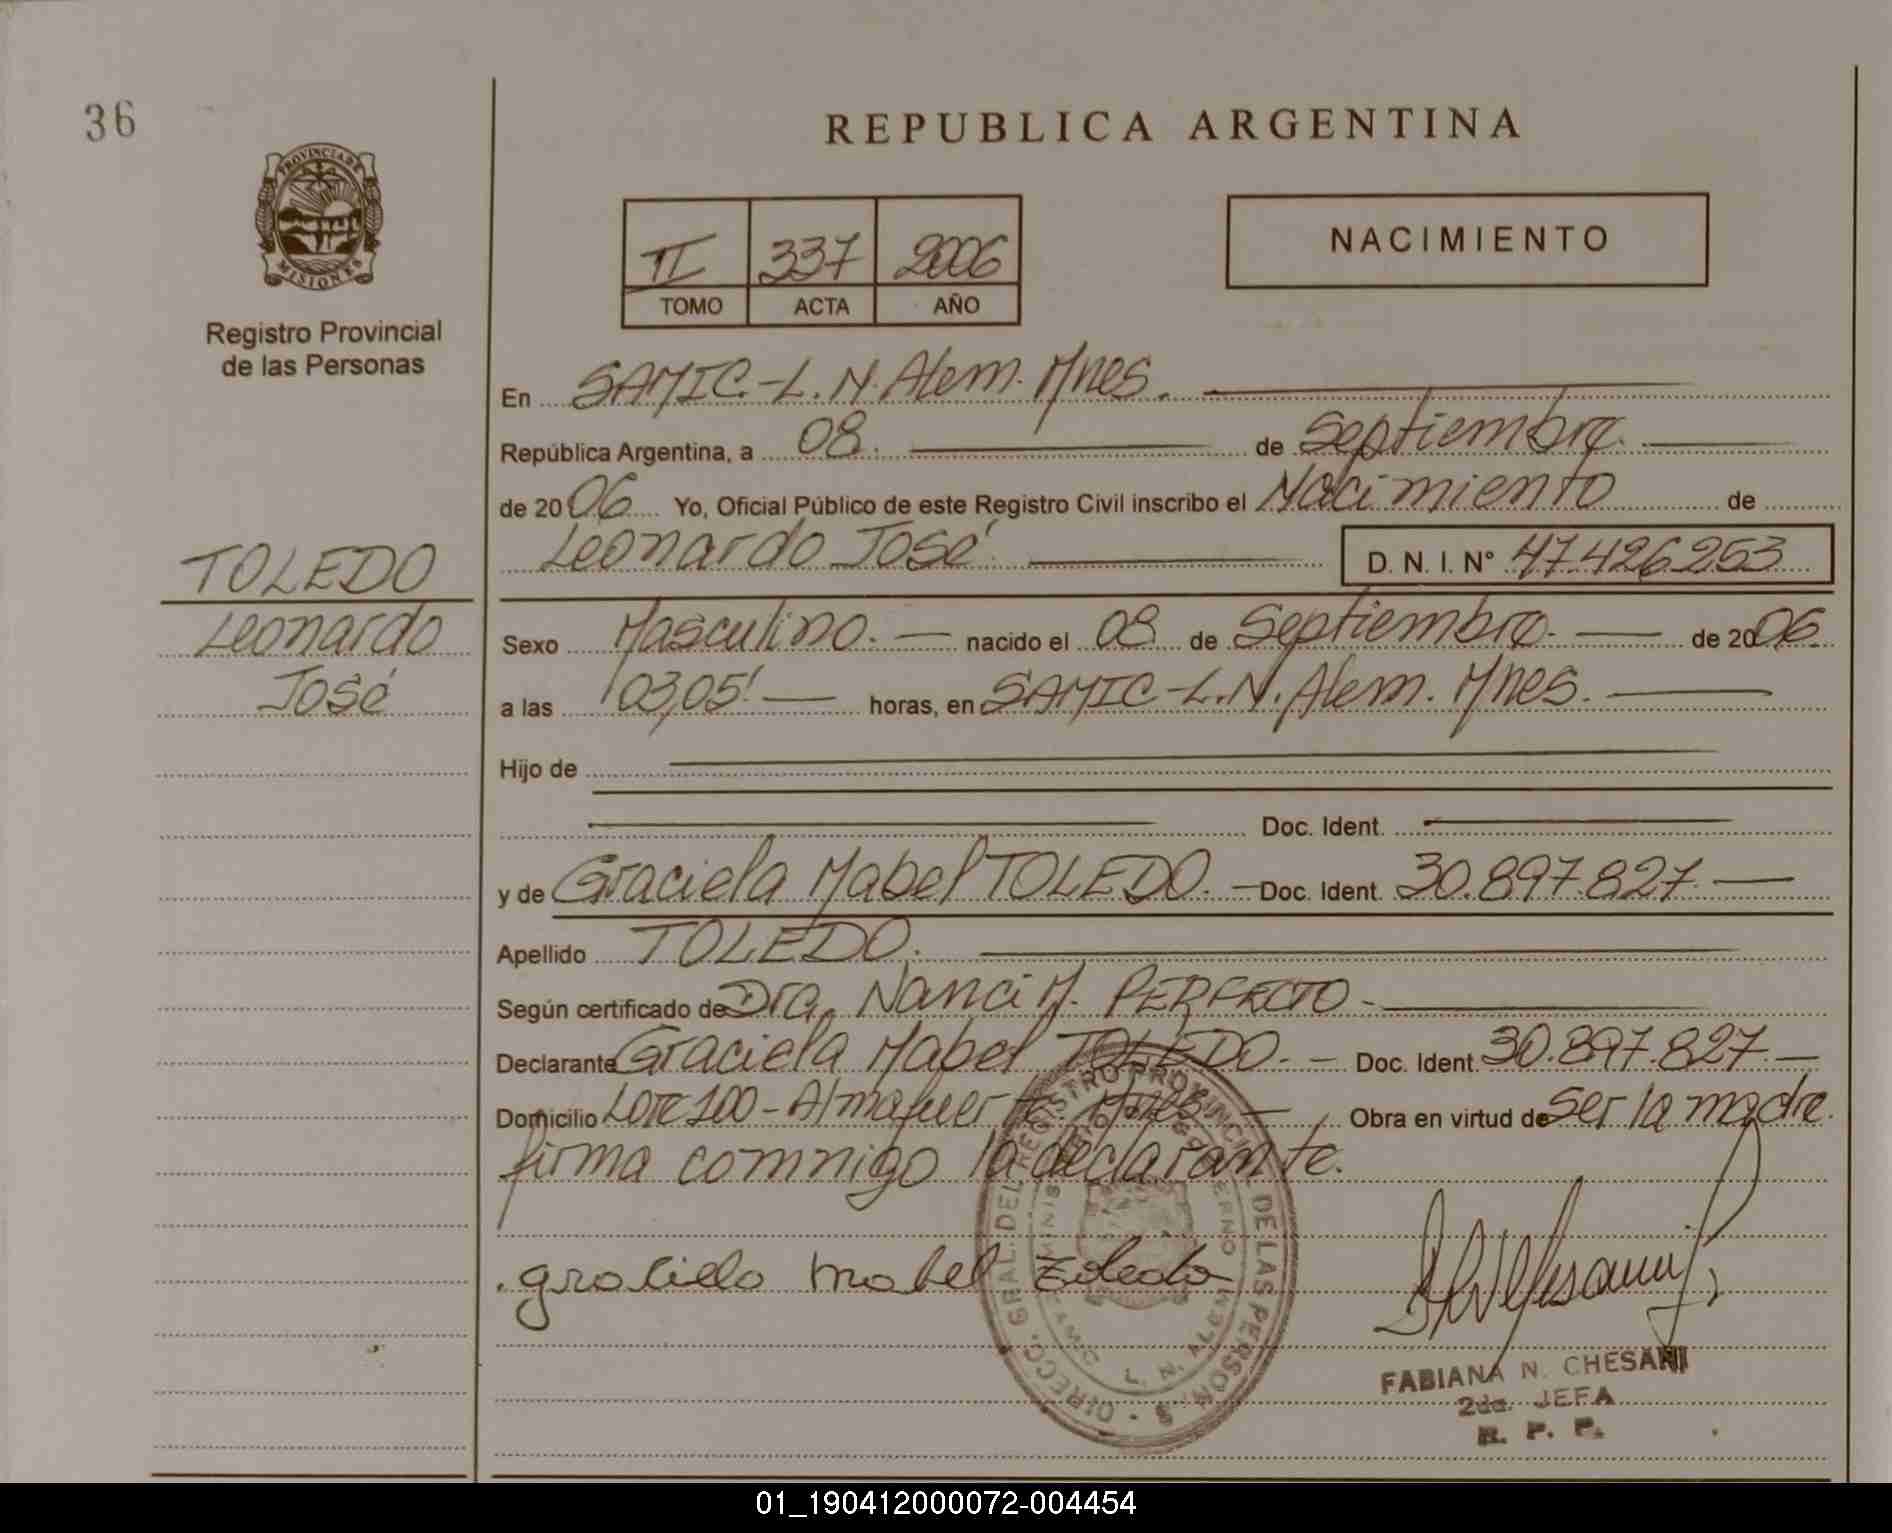 36
REPUBLICA ARGENTINA
PROVINCIA DE
MISIONES
Registro Provincial
de las Personas
II 337 2006
TOMO ACTA AÑO
NACIMIENTO
En SAMIC.-L.N.Alem. Mnes.
República Argentina, a 08. de Septiembre.
de 2006 Yo, Oficial Público de este Registro Civil inscribo el Nacimiento de
Leonardo José D. N. I. N° 47.426.253
TOLEDO
Leonardo
José
Sexo Masculino. nacido el 08 de Septiembre. de 2006.
a las 03,05' horas, en SAMIC-L.N.Alem. Mnes.
Hijo de
Doc. Ident.
y de Graciela Mabel TOLEDO. Doc. Ident. 30.897.827.
Apellido TOLEDO.
Según certificado de Dra. Nanci M. PERFECTO.
Declarante Graciela Mabel TOLEDO. Doc. Ident. 30.897.827.
Domicilio Lote 100-Almafuerte Mnes. Obra en virtud de ser la madre.
firma comnigo la declarante.
graciela mabel Toledo
DIRECC. GRAL. DEL REGISTRO PROVINCIAL DE LAS PERSONAS
L. N. ALEM
FABIANA N. CHESANI
2da. JEFA
R. P. P.
01_190412000072-004454